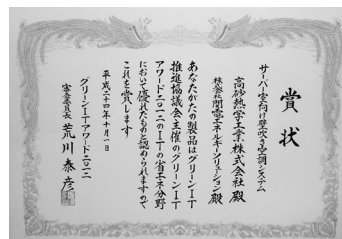 賞状
サーバー室向け壁吹き空調システム
高砂熱学工業株式会社 殿
株式会社関電エネルギーソリューション 殿
あなたがたの製品はグリーンIT
推進協議会主催のグリーンIT
アワード二〇一二のITの省エネ分野
において優れたものと認められますので
これを賞します
平成二十四年十月一日
グリーンITアワード二〇一二
審査委員長 荒川泰彦